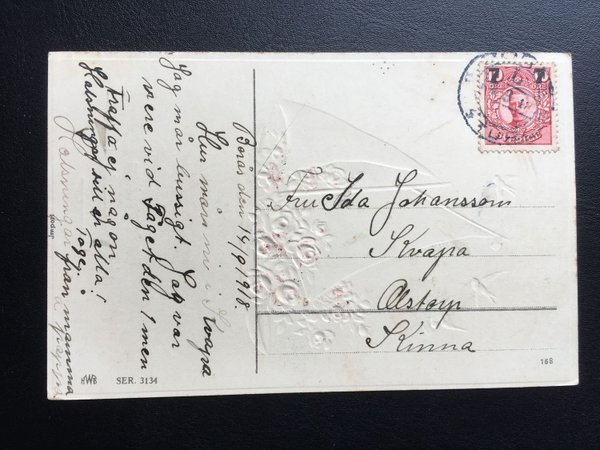 Borås den 14/9 1918
Hur mår ni i Kvapa
Jag mår bussigt. Jag var
nere vid Tåget den 1 men
Träffa ej någon
Tage.
Hälsningar till er alla!
Hälsningar från mamma
Fru Ida Johansson
Kvapa
Ålstorp
Kinna
7 7
HWB SER. 3134
168